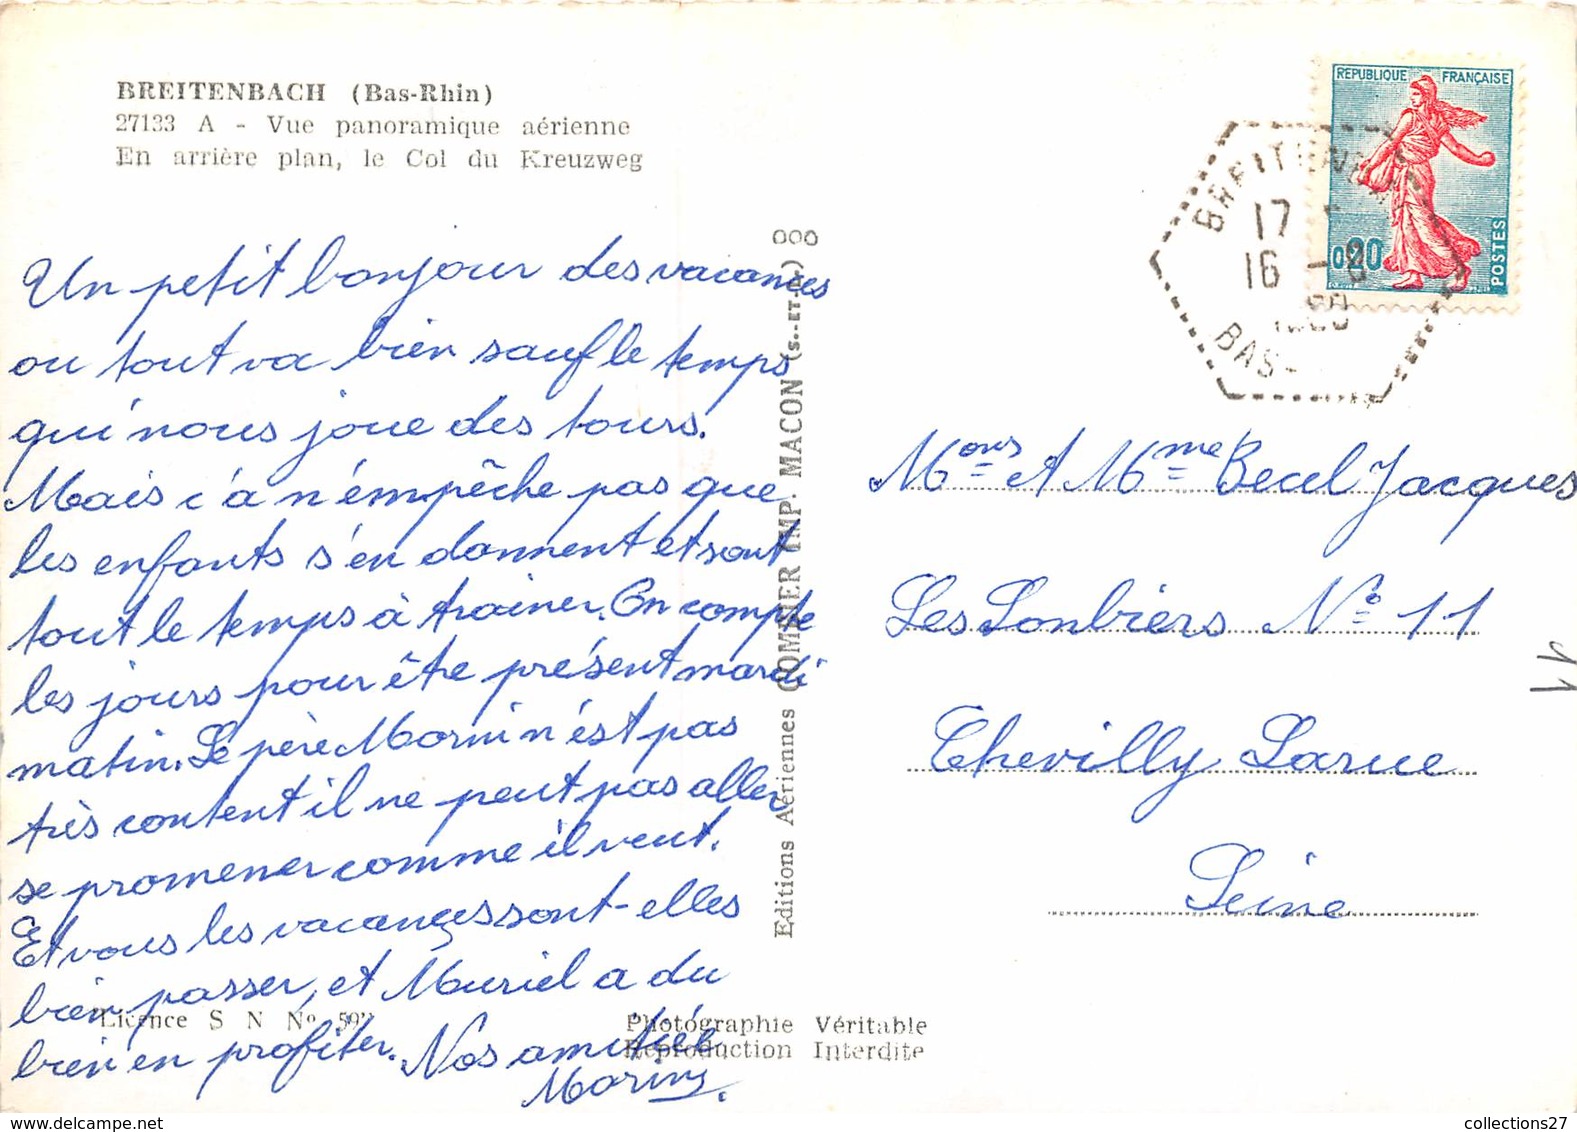 BREITENBACH (Bas-Rhin)
27133 A - Vue panoramique aérienne
En arrière plan, le Col du Kreuzweg
Un petit bonjour des vacances
ou tout va bien sauf le temps
qui nous joue des tours.
Mais c'a n'émpêche pas que
les enfants s'en donnent et sont
tout le temps à trainer. On compte
les jours pour être présent mardi
matin. Le père Morin n'ést pas
très content il ne peut pas aller
se promener comme il veut.
Et vous les vacançes sont-elles
bien passer, et Muriel a du
bien en profiter. Nos amitiée
Morin
Licence S N N° 599
Photographie Véritable
Reproduction Interdite
Editions Aériennes COMBIER IMP. MACON (S.-ET-L.) 000
REPUBLIQUE FRANÇAISE
0,20
POSTES
BREITENBACH
17
16 -8
BAS-
Mons et Mme Becel Jacques
Les Sorbiers N° 11
Chevilly Larue
Seine
11
collections27